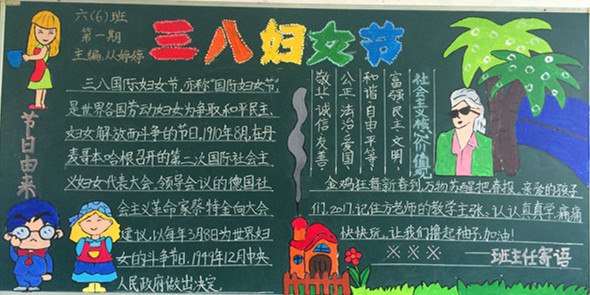 六(6)班
第一期
主编:从婷婷
三八妇女节
节日由来
三八国际妇女节,亦称"国际妇女节",
是世界各国劳动妇女为争取和平民主、
妇女解放而斗争的节日,1910年8月,在丹
麦哥本哈根召开的第二次国际社会主
义妇女代表大会,领导会议的德国社
会主义革命家蔡特金向大会
建议,以每年3月8日为世界妇
女的斗争日,1949年12月中央
人民政府做出决定。
社会主义核心价值观
富强、民主、文明、
和谐、自由、平等、
公正、法治、爱国、
敬业、诚信、友善
金鸡狂舞新春到,万物苏醒把春报。亲爱的孩子
们,2017,记住方老师的教学主张、认认真真学,痛痛
快快玩,让我们撸起袖子,加油!
※※※
班主任寄语